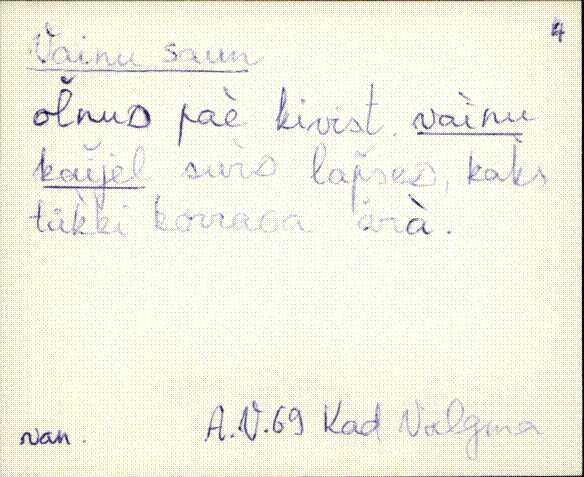 4
Vainu saun
olnuᴅ paè kivist. vàinu
kaijel suriᴅ lapseᴅ, kaks
tükki korraga ärà.
van. A.V.69 Kad Valgma